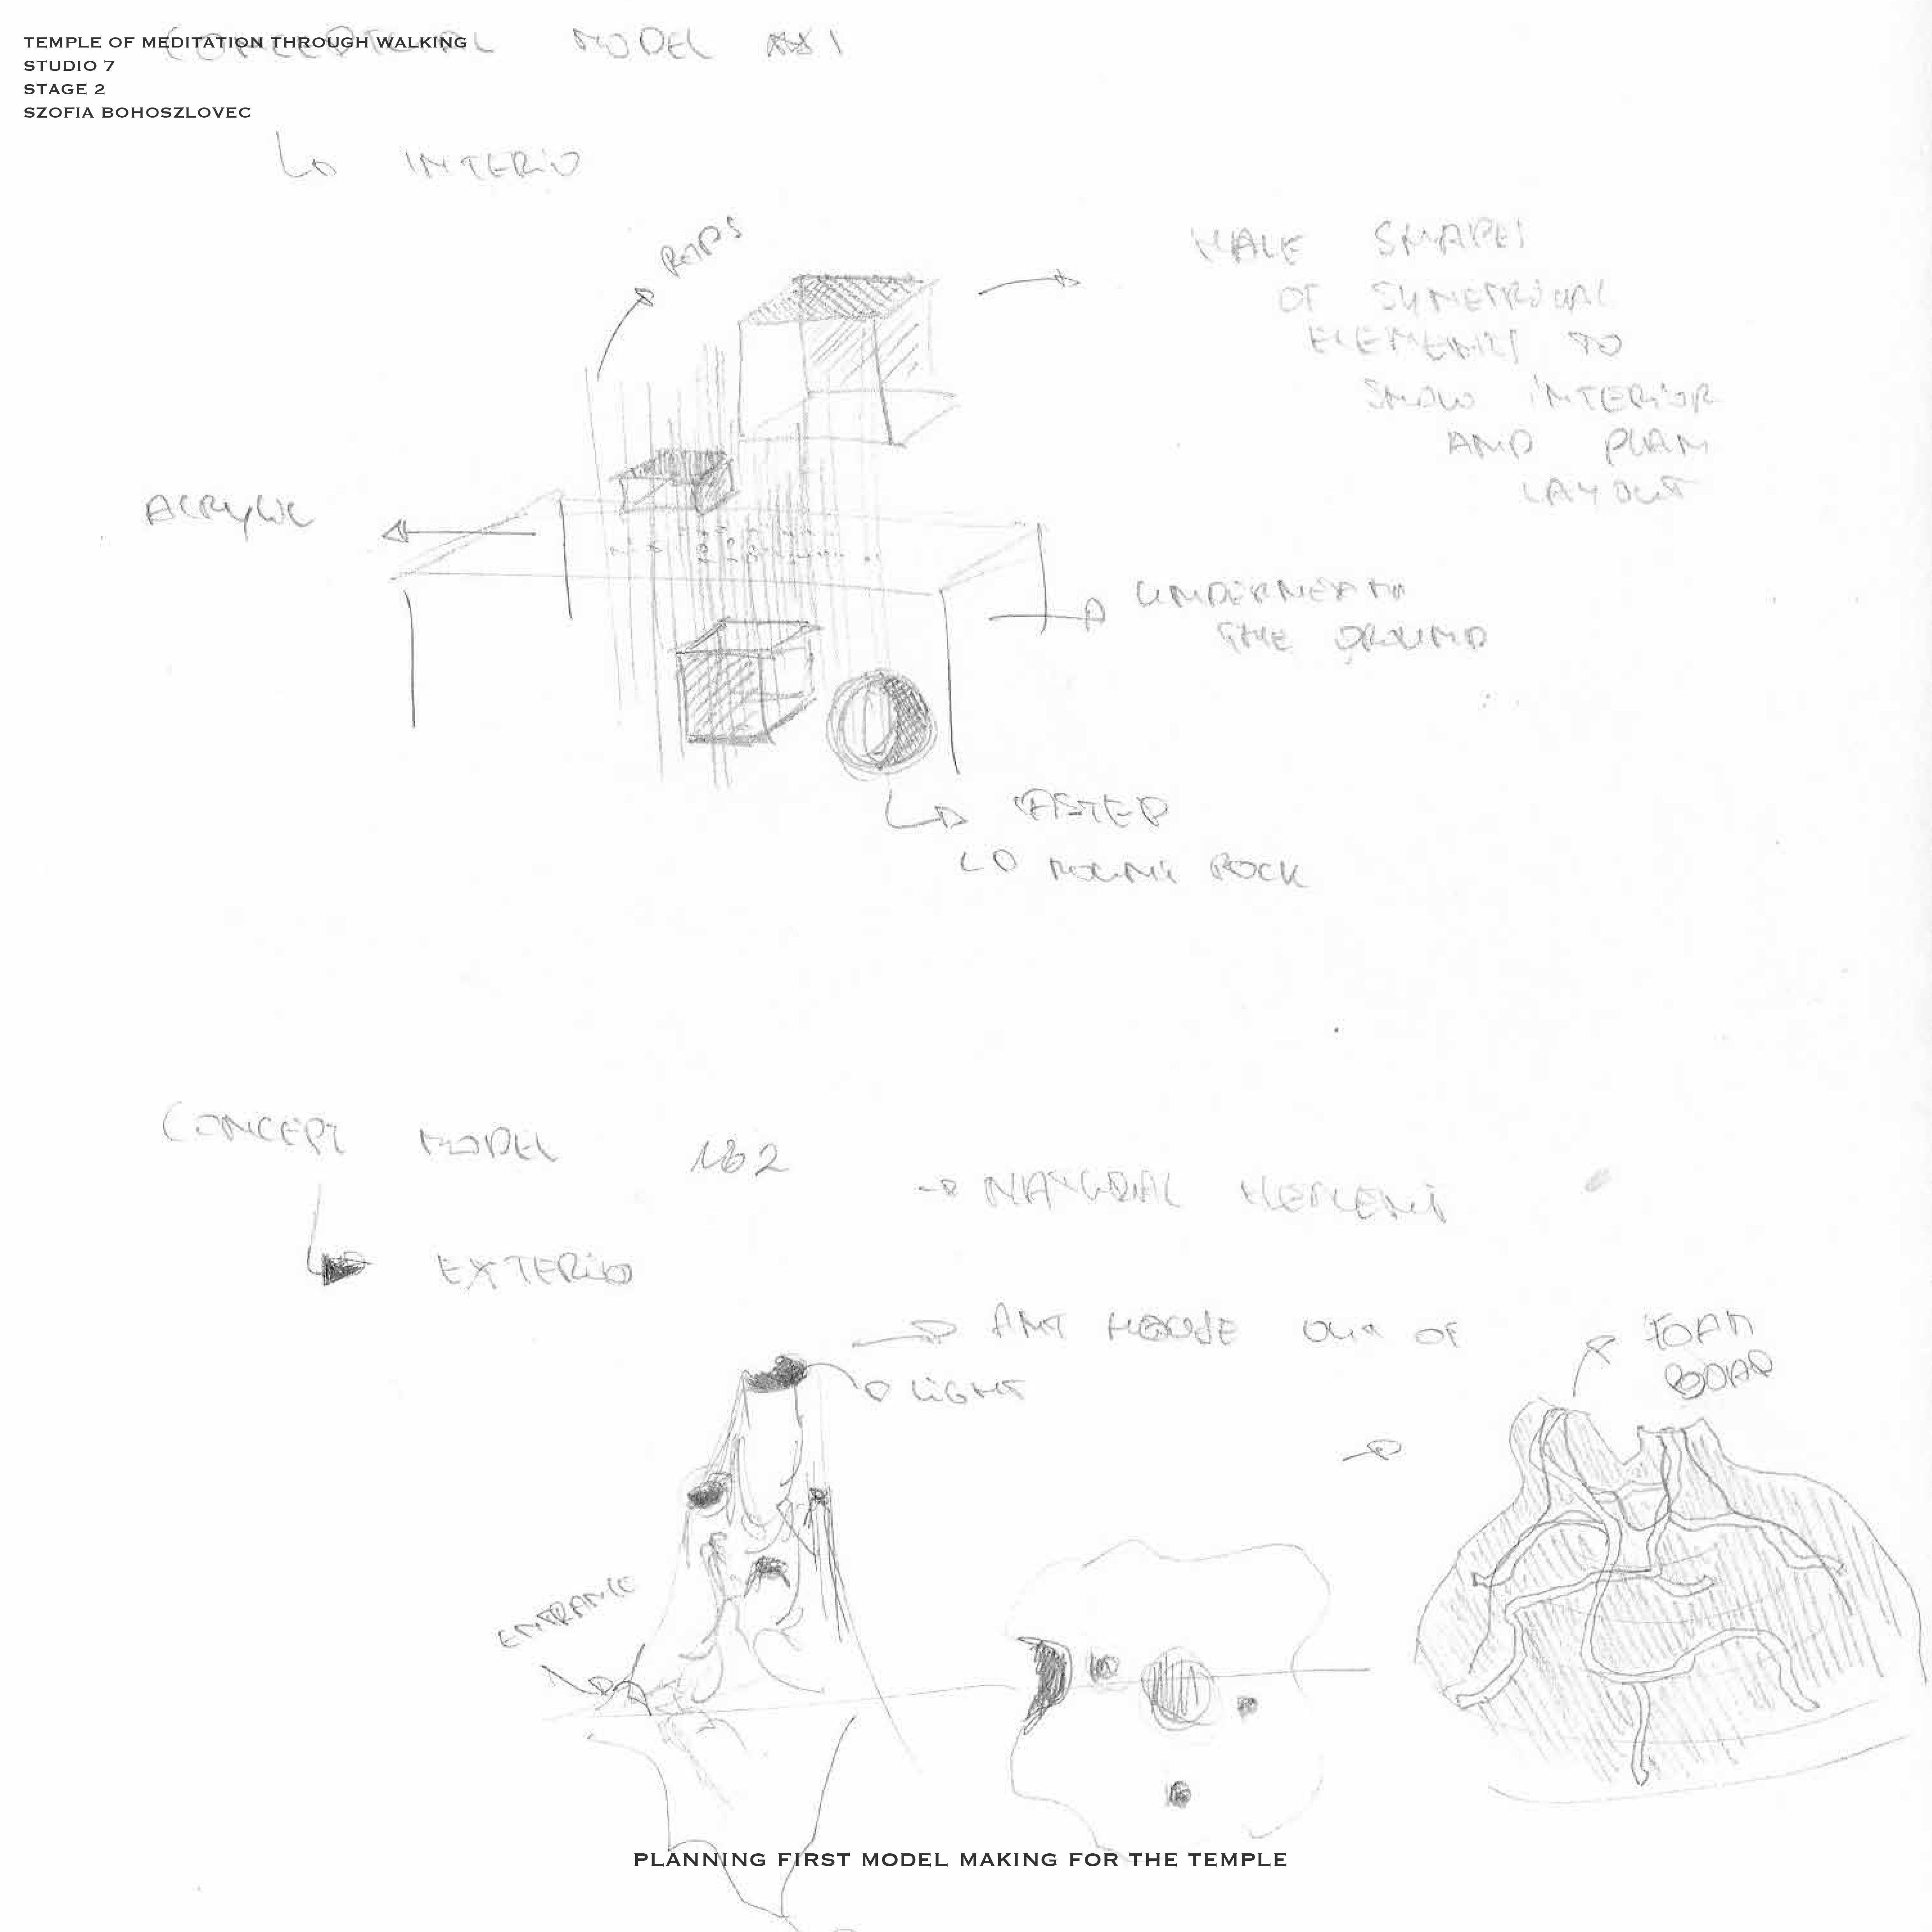 TEMPLE OF MEDITATION THROUGH WALKING
STUDIO 7
STAGE 2
SZOFIA BOHOSZLOVEC
CONCEPTUAL MODEL 1
INTERIO
SHAPES
OF SYMETRICAL
ELEMENTS TO
SHOW INTERIOR
AND PLAN
LAYOUT
ACRYLIC
UNDERNEATH
THE GROUND
CASTED
ROCK
CONCEPT MODEL 2
EXTERIO
ANT HOUSE OUT OF
LIGHT
FOAM
BOAR
ENTRANCE
PLANNING FIRST MODEL MAKING FOR THE TEMPLE